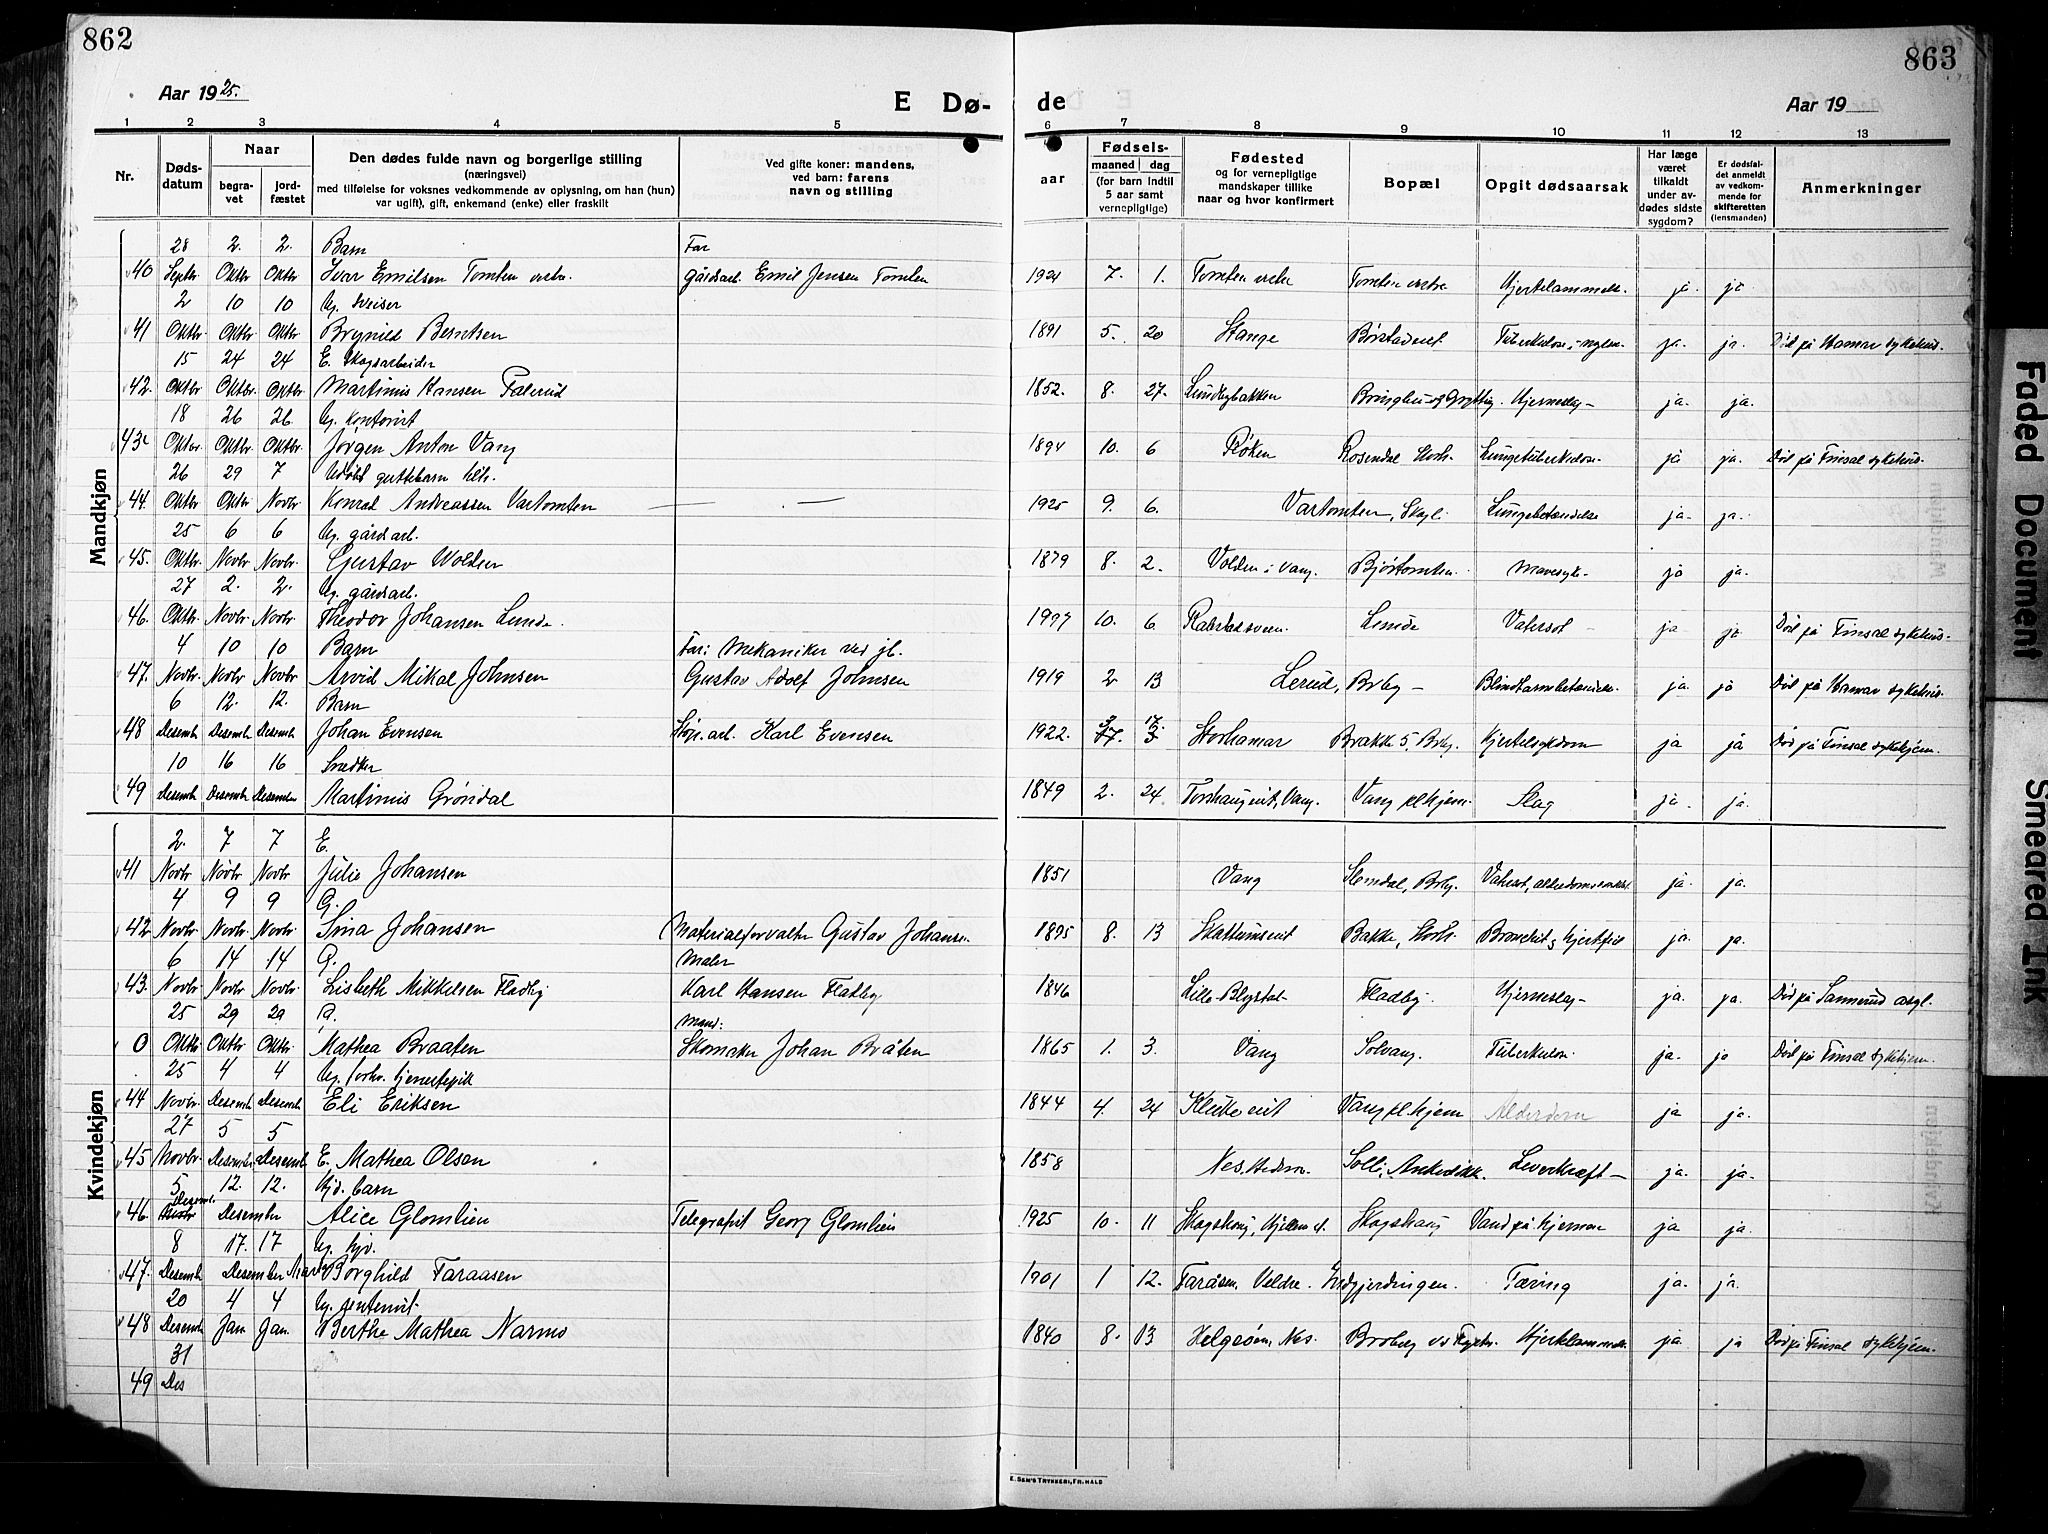 862
Aar 1925.
E Dø-
1 2 3 4 5
Nr.
Døds-
datum
Naar
begra-
vet
jord-
fæstet
Den dødes fulde navn og borgerlige stilling
(næringsvei)
med tilføielse for voksnes vedkommende av oplysning, om han (hun)
var ugift), gift, enkemand (enke) eller fraskilt
Ved gifte koner: mandens,
ved barn: farens
navn og stilling
Mandkjøn
28 2. 2. Barn Far
40 Septbr. Oktbr Oktbr Ivar Emilsen Tomten vestre. gårdsarb. Emil Jensen Tomten
2 10 10 Ug. sveiser
41 Oktbr. Oktbr. Oktbr Brynild Berntsen
15 24 24 E. Skogsarbeider
42. Oktbr Oktbr. Oktbr Martinus Hansen
18 26 26 Ug. kontorist
43 Oktbr. Oktbr. Oktbr. Jørgen Anton Vang
26 29 7 guttebarn
44. Oktbr Oktbr Novbr Konrad Andreassen Vartomten — —
25 6 6 Ug. gårdsarb.
45. Oktbr. Novbr. Novbr. Gustav Volden
27 2. 2. Ug. gårdsarb.
46. Oktbr. Novbr. Novbr. Theodor Johansen Lunde.
4 10 10 Barn Far: Mekaniker ved jb.
47. Novbr. Novbr Novbr Arvid Mikal Johnsen Gustav Adolf Johnsen
6 12. 12. Barn
48 Desemb Desemb Desemb Johan Evensen arb. Karl Evensen
10 16 16 Snedker
49 Desemb Desemb Desember Martinus Grøndal
Kvindekjøn
2. 7 7 E.
41 Novbr Novbr Novbr Julie Johansen
4 9 9 G.
42 Novbr. Novbr. Novbr. Sina Johansen Materialforvalter Gustav Johansen
6 14 14 G. Maler
43. Novbr Novbr Novbr Lisbeth Mikkelsen Fladby Karl Hansen Fladby
25 29 29 G. Mand:
0 Oktbr Oktbr Oktbr. Mathea Braaten Skomaker Johan Bråten
25 4 4 Ug. forhv. tjenestepik
44 Novbr. Desemb Desemb Eli Eriksen
27 5 5
45 Novbr. Desember Desemb E. Mathea Olsen
5 12. 12. Hjd. barn
46. Desemb. Desember Alice Glomlien Telegrafist Georg Glomlien
8 17. 17 Ug. hjv.
47. Desemb Desember Borghild Taraasen
20 4 4 Ug.
48 Desemb Jan Jan. Berthe Mathea Narmo
31
49 Des
863
de
Aar 19
6 7 8 9 10 11 12 13
aar
Fødsels-
maaned dag
(for barn indtil
5 aar samt
vernepligtige)
Fødested
og for vernepligtige
mandskaper tillike
naar og hvor konfirmert
Bopæl
Opgit dødsaarsak
Har læge
været
tilkaldt
under av-
dødes sidste
sygdom?
Er dødsfal-
det anmeldt
av vedkom-
mende for
skifteretten
(lensmanden)
Anmerkninger
1924 7. 1. Tomten vestre Tomten vestre Hjertelammelse. ja ja
1891 5. 20 Stange Tuberkulose, ja. ja. Død på Hamar sykehus.
1852. 8. 27. Lundbybakken Hjerneslag — ja. ja.
1894 10. 6 Røken Rosendal Storh. Lungetuberkulose. ja ja. Død på Finsal sykehus.
1925 9. 6. Vartomten, Lungebetændelse ja. ja.
1879 8. 2. Volden i Vang. Bjørtomten. Mavesyke. ja ja.
10. 6. Lunde Vatersot — ja ja Død på Finsal sykehus.
1919 2 13 Lerud, Brby — Blindtarmbetændelse. ja. ja Død på Hamar sykehus.
1922. 3 17 Storhamar Brakke 5, Brby. Hjertesykdom ja ja Død på Finsal sykehjem.
1849 2. 24 Vang. Vang pl.hjem. Slag ja. ja.
1851 Vang Stendal, Brby. Vatersot, ja. ja.
1895 8. 13 Bakke, Storh. Bronchit og hjertfeil ja. ja.
1846 Lille Fladby. Hjerneslag — ja. ja. Død på Sannerud asyl.
1865 1. 3. Vang Solvang. Tuberkulose. ja. ja Død på Finsal sykehjem.
1844 4. 24 Klukeeiet Vang pl.hjem Alderdom ja ja.
1858 Nes, Hedem. Solli, Leverkræft — ja ja.
1925 10. 11 Skogshaug, Skogshaug Vand på hjernen ja ja.
1901 1 12. Taråsen, Veldre. Tæring ja. ja.
1840 8. 13 Helgeøen, Nes. Broberg Hjertelammelse. ja. ja Død på Finsal sykehjem.
E. SEM'S TRYKKERI, FR.HALD
Faded Document
Smeared Ink